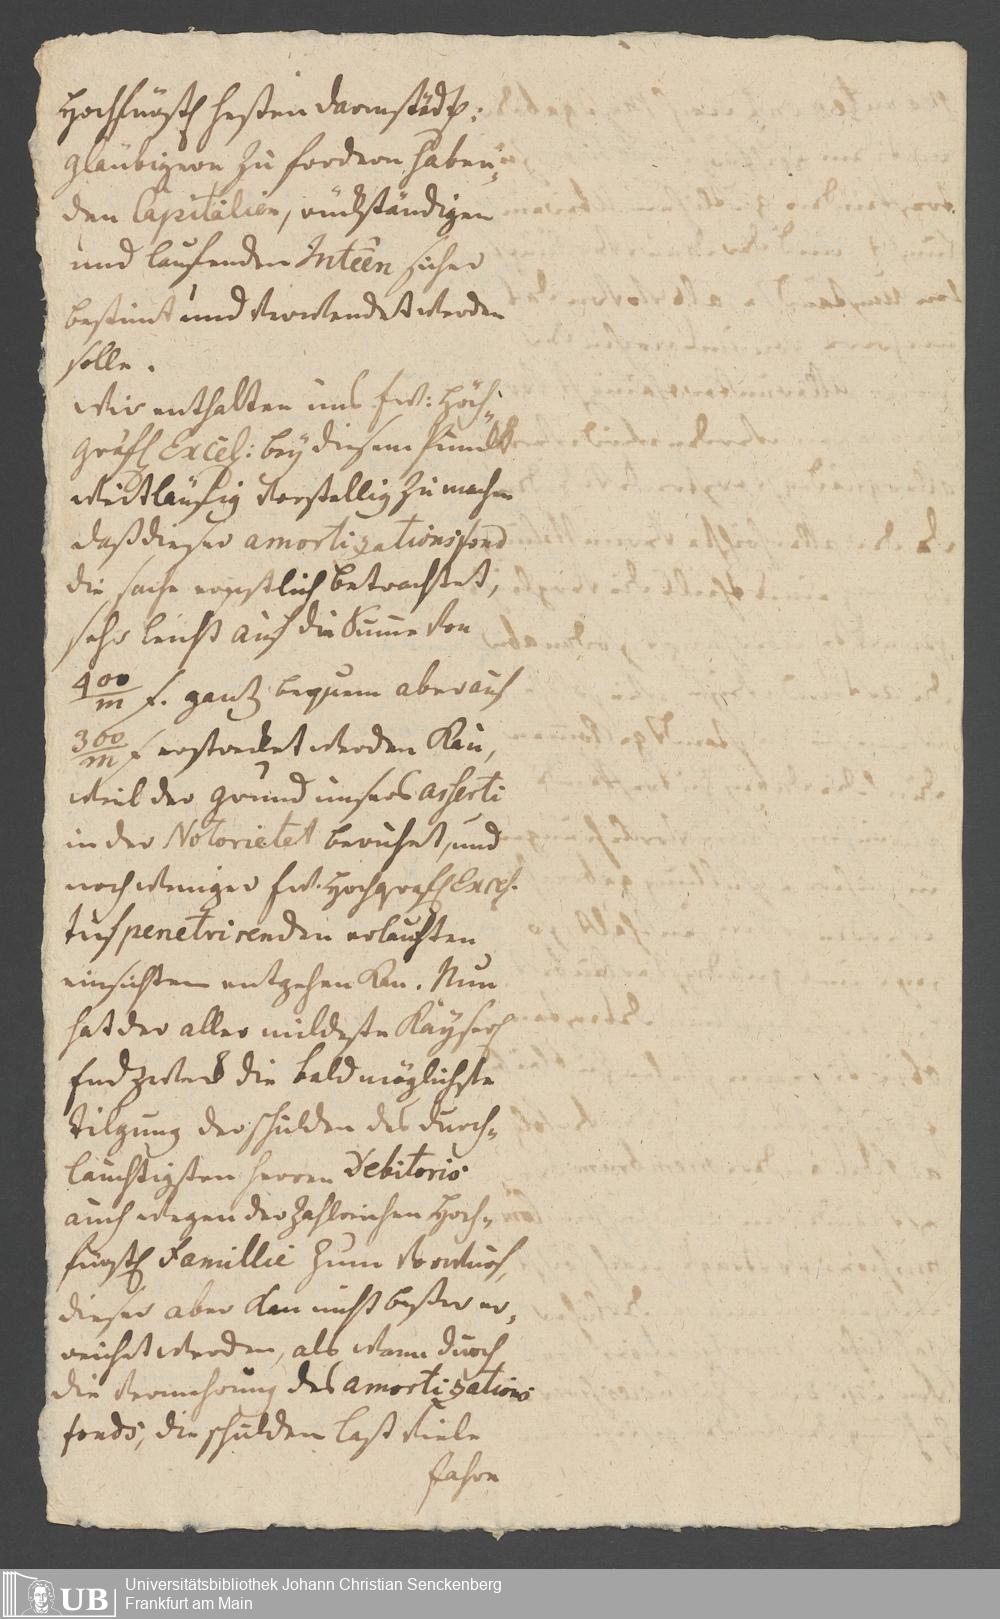 Hochfürstl Hessen Darmstädt:
Gläubigern zu fordern haben„
den Capitalien, rückständigen
und laufenden Inteen sicher
bestimt und verwendet werden
solle.
Wir enthalten uns Ew: Hoch„
gräfl Excel: bey diesem Punkt
weitläufig vorstellig zu machen
daß dieser amortizationsfond
die sache ernstlich betrachtet,
sehr leicht auf die Summe von
400/m f. gantz bequem aber auf
300/m f erstrecket werden kan,
weil der grund unsers asserti
in der Notorietet beruhet, und
noch weniger Ew. Hochgräfl Excel.
tief penetrirenden erlauchten
einsichten entgehen kan. Nun
hat der aller mildeste Kayserl
Endzweck die baldmöglichste
tilgung der schulden des durch„
lauchtigsten Herren Debitoris
auch wegen der zahlreichen Hoch„
fürstl Famillie zum Vorwurf,
dieser aber kan nicht besser er„
reichet werden, als wann durch
die Vermehrung des amortizations
fonds, die schulden last viele
Jahre
Universitätsbibliothek Johann Christian Senckenberg
Frankfurt am Main
UB